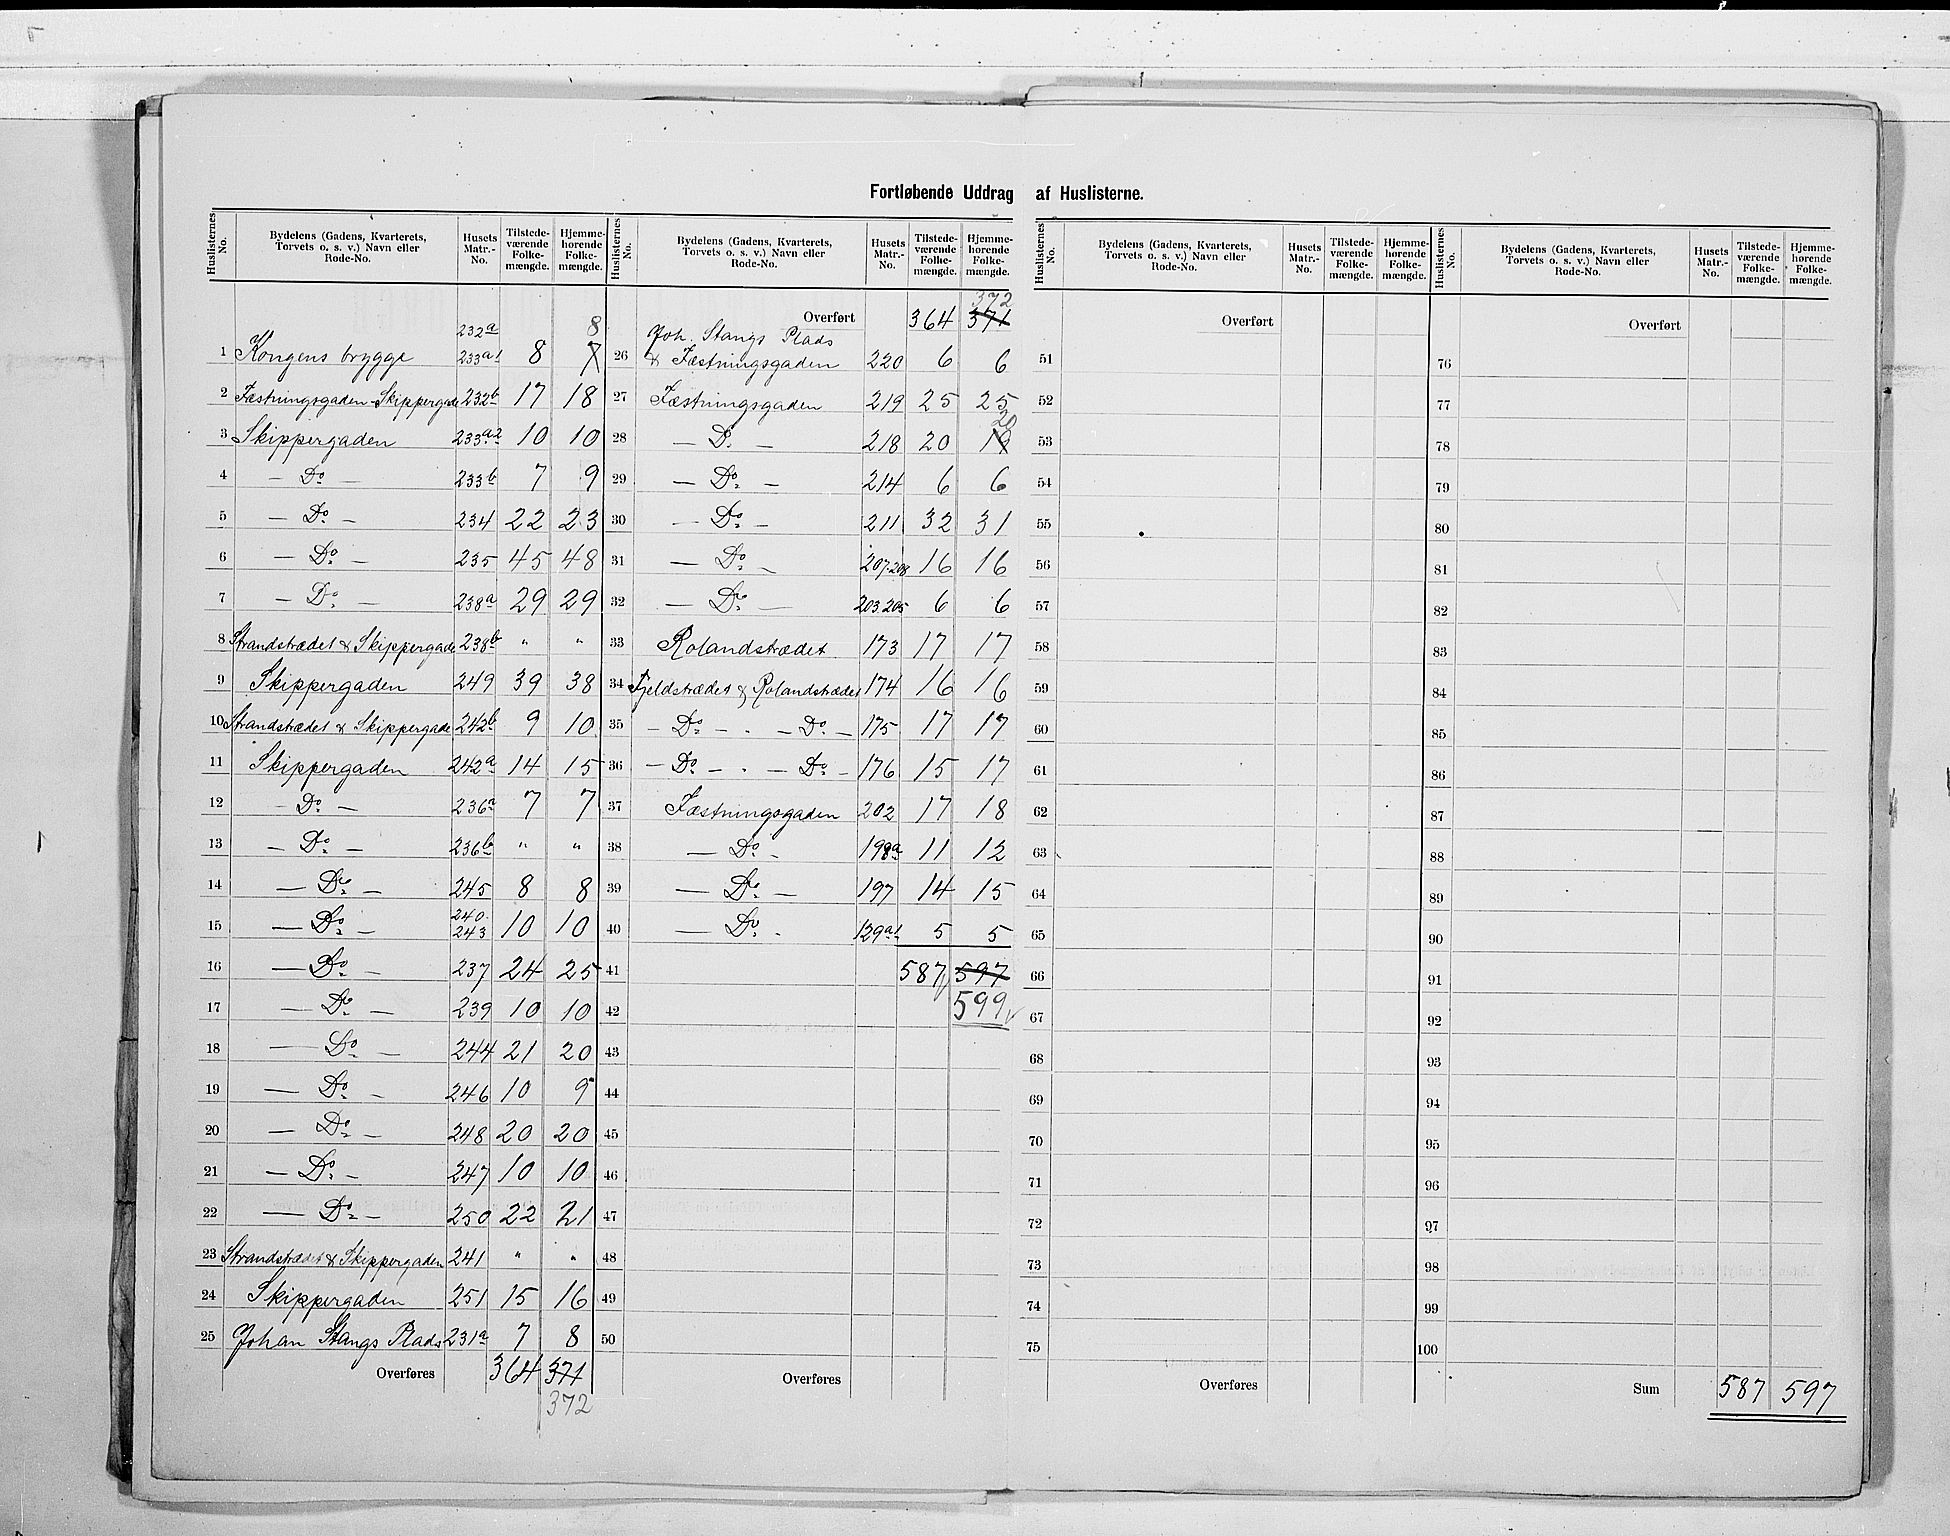 Fortløbende Uddrag af Huslisterne.
Huslisternes No. | Bydelens (Gadens, Kvarterets, Torvets o. s. v.) Navn eller Rode-No. | Husets Matr.-No. | Tilstede-værende Folke-mængde. | Hjemme-hørende Folke-mængde.
1 Kongens brygge 232a 233a1 8 7 8
2 Fæstningsgaden-Skippergade 232b 17 18
3 Skippergaden 233a2 10 10
4 — Do — 233b 7 9
5 — Do — 234 22 23
6 — Do — 235 45 48
7 — Do — 238a 29 29
8 Strandstrædet & Skippergade 238b " "
9 Skippergaden 249 39 38
10 Strandstrædet & Skippergade 242b 9 10
11 Skippergaden 242a 14 15
12 — Do — 236a 7 7
13 — Do — 236b " "
14 — Do — 245 8 8
15 — Do — 240. 243 10 10
16 — Do — 237 24 25
17 — Do — 239 10 10
18 — Do — 244 21 20
19 — Do — 246 10 9
20 — Do — 248 20 20
21 — Do — 247 10 10
22 — Do — 250 22 21
23 Strandstrædet & Skippergaden 241 " "
24 Skippergaden 251 15 16
25 Johan Stangs Plads 231a 7 8
Overføres 364 371
372
Huslisternes No. | Bydelens (Gadens, Kvarterets, Torvets o. s. v.) Navn eller Rode-No. | Husets Matr.-No. | Tilstede-værende Folke-mængde. | Hjemme-hørende Folke-mængde.
372
Overført 364 371
26 Joh. Stangs Plads & Fæstningsgaden 220 6 6
27 Fæstningsgaden 219 25 25
28 — Do — 218 20 19 20
29 — Do — 214 6 6
30 — Do — 211 32 31
31 — Do — 207.208 16 16
32 — Do — 203.205 6 6
33 Rolandstrædet 173 17 17
34 Fjeldstrædet & Rolandstrædet 174 16 16
35 — Do — . — Do — 175 17 17
36 — Do — . — Do — 176 15 17
37 Fæstningsgaden 202 17 18
38 — Do — 198a 11 12
39 — Do — 197 14 15
40 — Do . 139a1 5 5
41 587 597
42 599
43
44
45
46
47
48
49
50
Overføres
Huslisternes No. | Bydelens (Gadens, Kvarterets, Torvets o. s. v.) Navn eller Rode-No. | Husets Matr.-No. | Tilstede-værende Folke-mængde. | Hjemme-hørende Folke-mængde.
Overført
51
52
53
54
55
56
57
58
59
60
61
62
63
64
65
66
67
68
69
70
71
72
73
74
75
Overføres
Huslisternes No. | Bydelens (Gadens, Kvarterets, Torvets o. s. v.) Navn eller Rode-No. | Husets Matr.-No. | Tilstede-værende Folke-mængde. | Hjemme-hørende Folke-mængde.
Overført
76
77
78
79
80
81
82
83
84
85
86
87
88
89
90
91
92
93
94
95
96
97
98
99
100
Sum 587 597